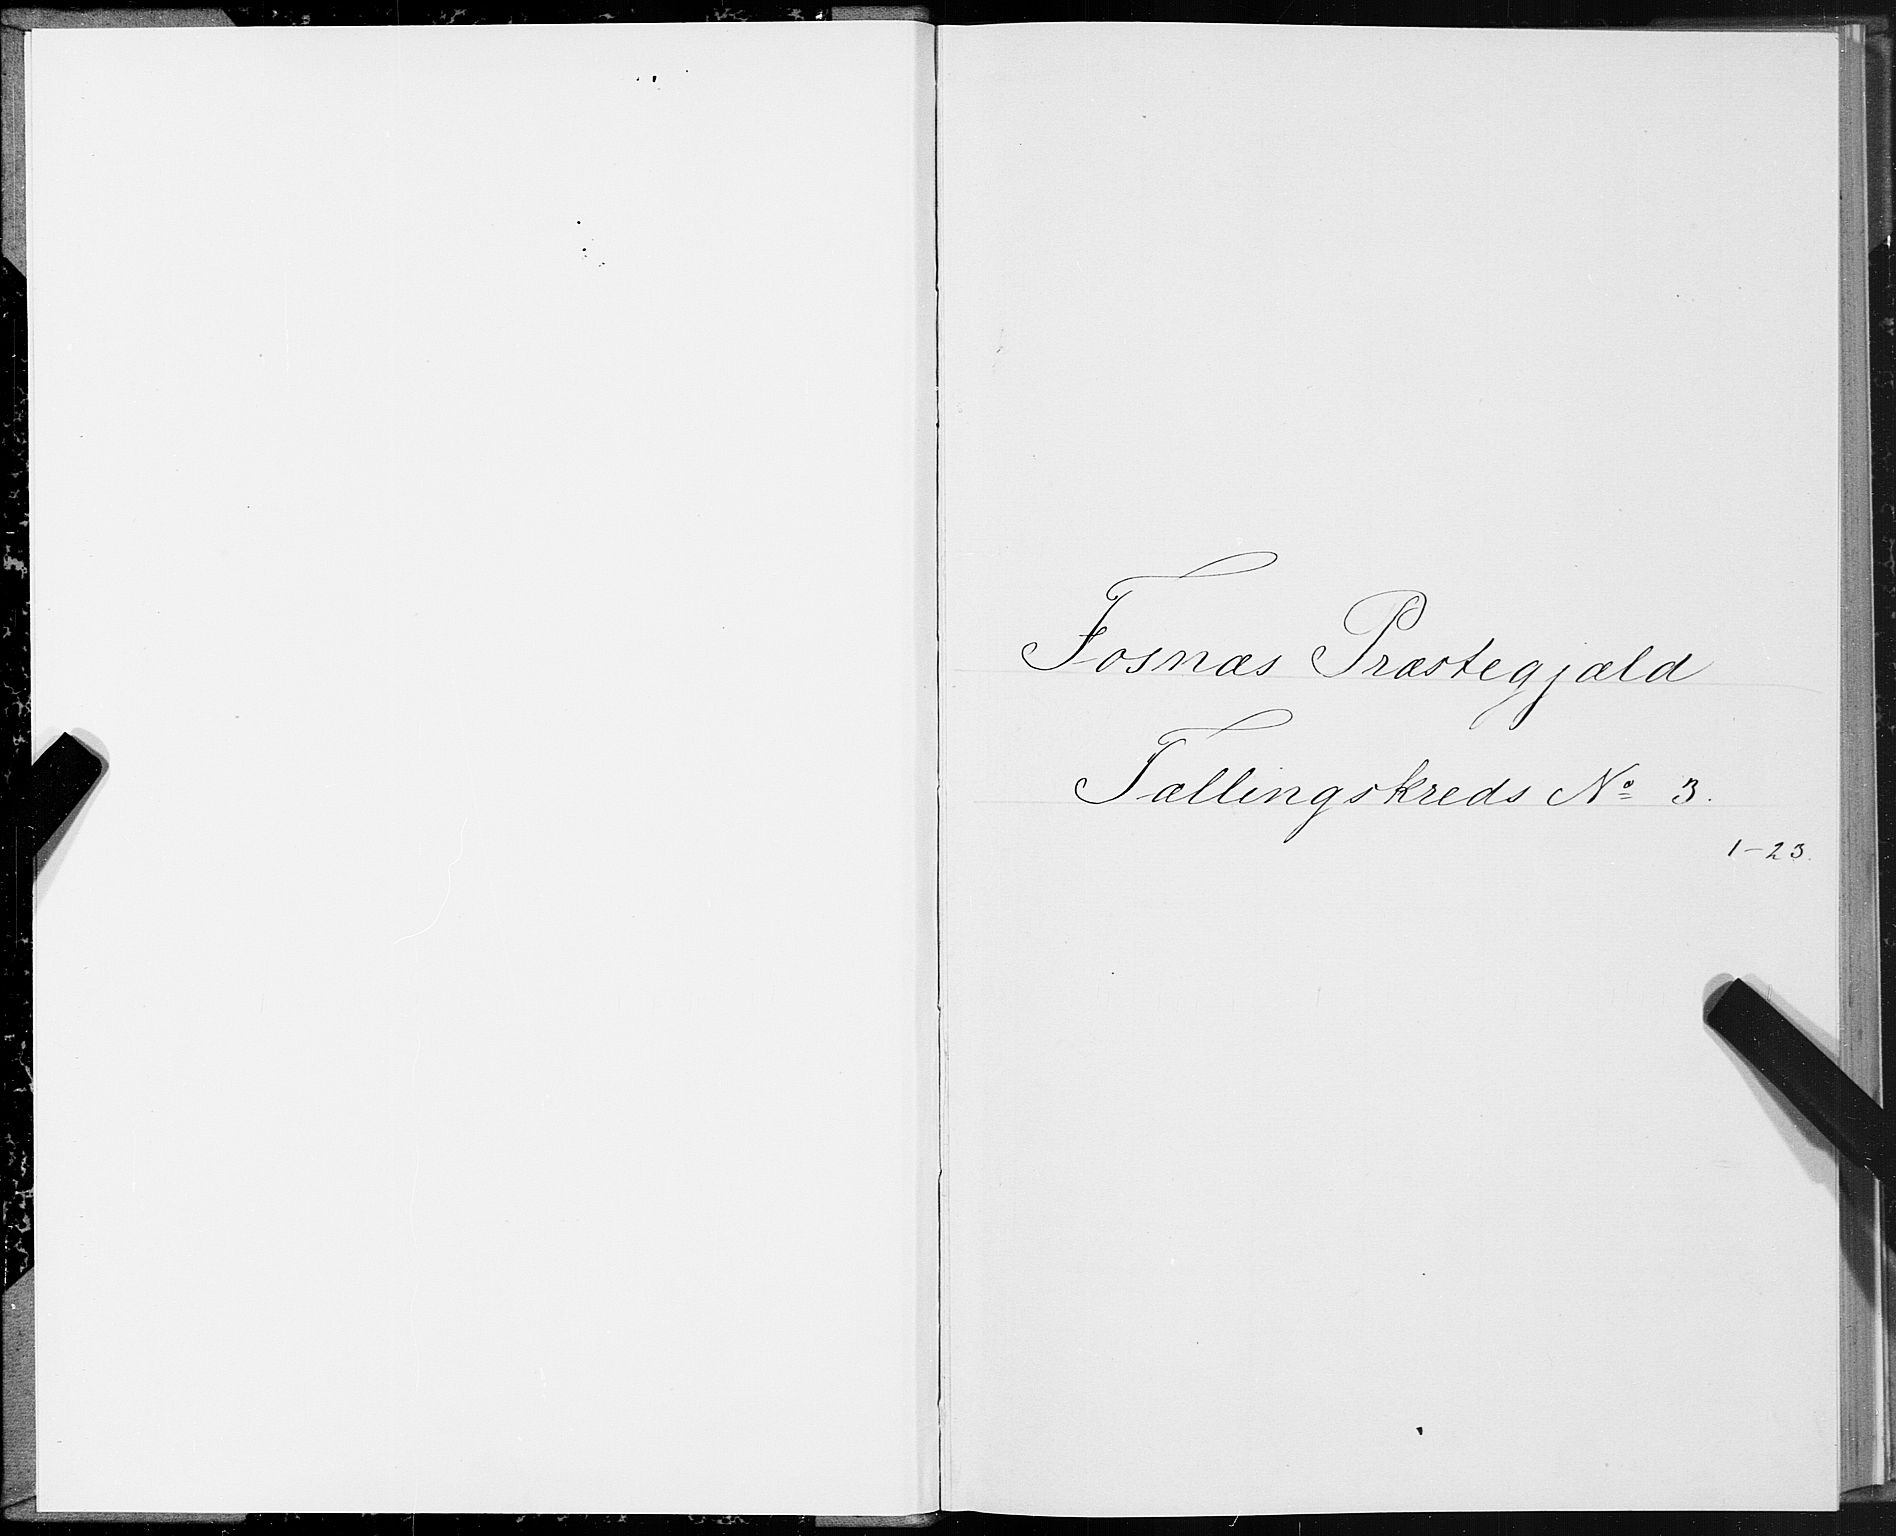 Fosnæs Præstegjæld
Tællingskreds No 3.
1-23.